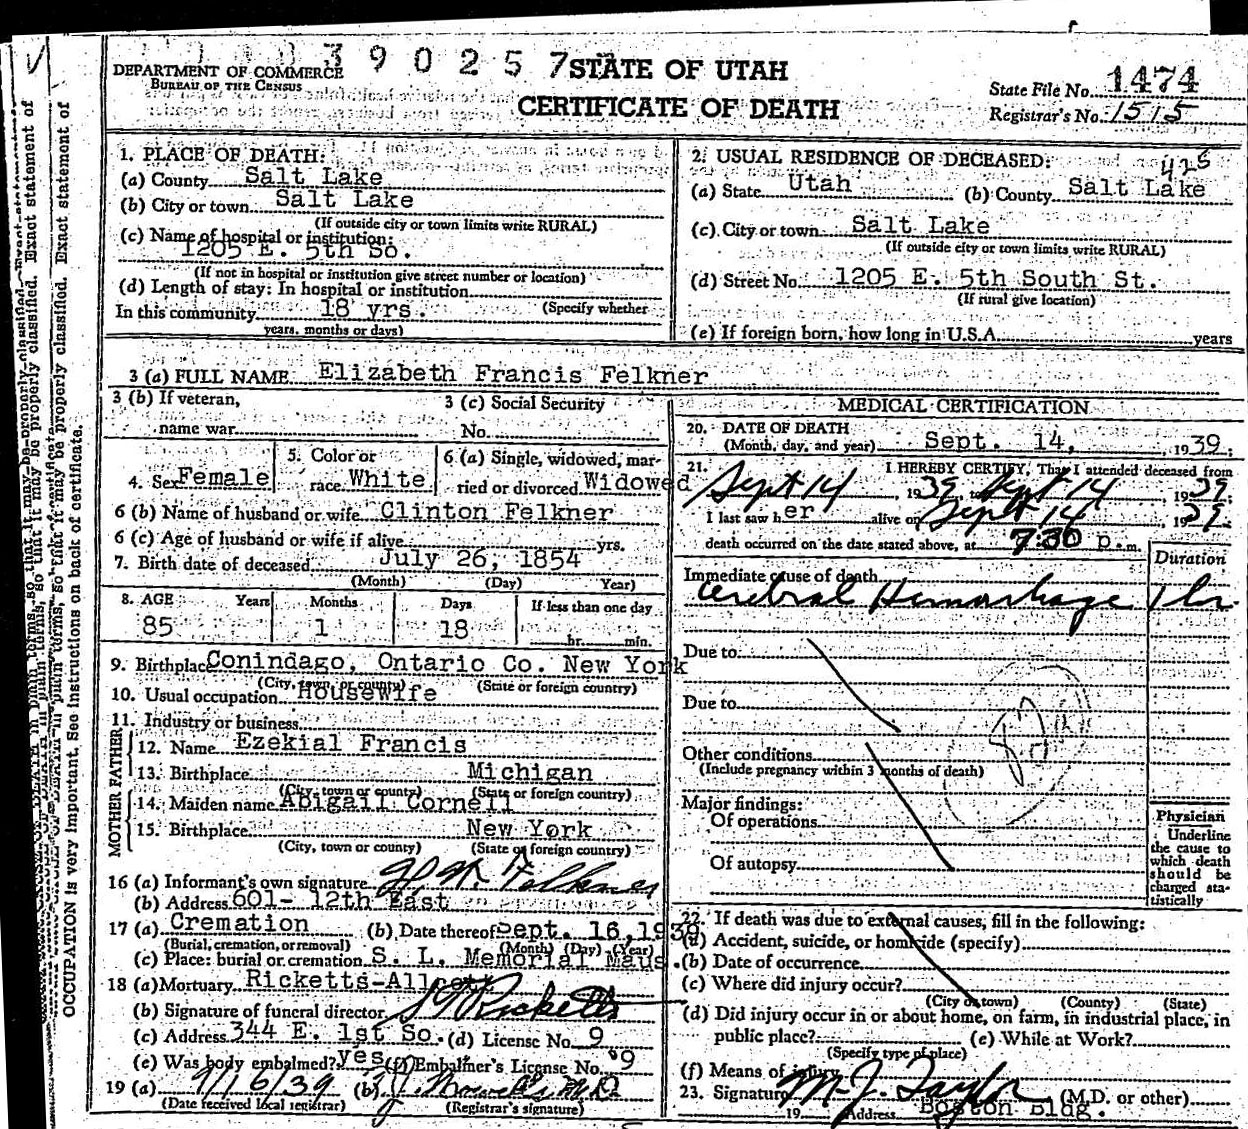 390257
DEPARTMENT OF COMMERCE
BUREAU OF THE CENSUS
STATE OF UTAH
CERTIFICATE OF DEATH
State File No. 1474
Registrar's No. 1515
1. PLACE OF DEATH:
(a) County Salt Lake
(b) City or town Salt Lake
(If outside city or town limits write RURAL)
(c) Name of hospital or institution:
1205 E. 5th So.
(If not in hospital or institution give street number or location)
(d) Length of stay: In hospital or institution
In this community 18 yrs. (Specify whether
years, months or days)
2. USUAL RESIDENCE OF DECEASED:
425
(a) State Utah (b) County Salt Lake
(c) City or town Salt Lake
(If outside city or town limits write RURAL)
(d) Street No. 1205 E. 5th South St.
(If rural give location)
(e) If foreign born, how long in U.S.A. years
3 (a) FULL NAME Elizabeth Francis Felkner
3 (b) If veteran, 3 (c) Social Security
name war No.
4. Sex Female 5. Color or race White 6 (a) Single, widowed, married or divorced Widowed
6 (b) Name of husband or wife Clinton Felkner
6 (c) Age of husband or wife if alive yrs.
7. Birth date of deceased July 26, 1854
(Month) (Day) Year)
8. AGE Years Months Days If less than one day
85 1 18 hr. min.
9. Birthplace Conindago, Ontario Co. New York
(City, town or county) (State or foreign country)
10. Usual occupation Housewife
11. Industry or business
FATHER
12. Name Ezekial Francis
13. Birthplace Michigan
(City, town or county) (State or foreign country)
MOTHER
14. Maiden name Abigail Cornell
15. Birthplace New York
(City, town or county) (State or foreign country)
16 (a) Informant's own signature Felkner
(b) Address 601- 12th East
17 (a) Cremation (b) Date thereof Sept. 16, 1939
(Burial, cremation, or removal) (Month) (Day) (Year)
(c) Place: burial or cremation S. L. Memorial Maus.
18 (a) Mortuary Ricketts-Allcott
(b) Signature of funeral director Ricketts
(c) Address 344 E. 1st So. (d) License No. 9
(e) Was body embalmed? yes (f) Embalmer's License No. 9
19 (a) 9/16/39 (b) M.D.
(Date received local registrar) (Registrar's signature)
MEDICAL CERTIFICATION
20. DATE OF DEATH
(Month, day, and year) Sept. 14, 1939.
21. I HEREBY CERTIFY, That I attended deceased from
Sept 14, 1939, to Sept 14, 1939;
I last saw her alive on Sept 14, 1939.
death occurred on the date stated above, at 7:30 p.m.
Duration
Immediate cause of death
Cerebral Hemorrhage 1 hr.
Due to
Due to
Other conditions
(Include pregnancy within 3 months of death)
Major findings:
Of operations
Of autopsy
Physician
Underline
the cause to
which death
should be
charged sta-
tistically
22. If death was due to external causes, fill in the following:
(a) Accident, suicide, or homicide (specify)
(b) Date of occurrence
(c) Where did injury occur?
(City or town) (County) (State)
(d) Did injury occur in or about home, on farm, in industrial place, in
public place? (e) While at Work?
(Specify type of place)
(f) Means of injury
23. Signature M. J. Taylor (M.D. or other)
19 Address Boston Bldg.
so that it may be properly classified. Exact statement of
OCCUPATION is very important. See instructions on back of certificate.